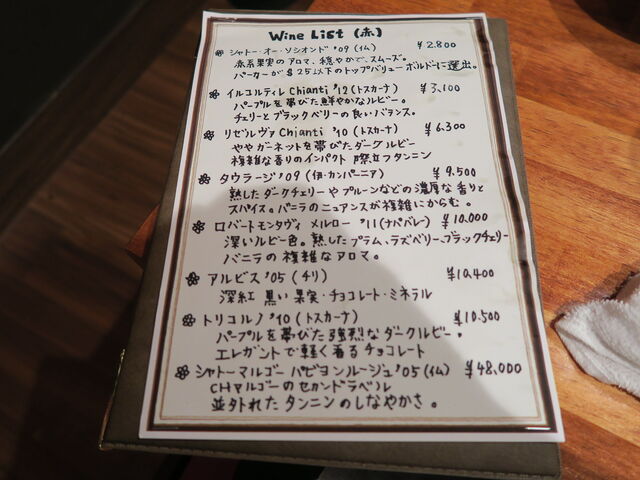 Wine List (赤)
シャトー・オー・ソシオンド '09 (仏) ¥2.800
赤系果実のアロマ、穏やかで、スムーズ。
パーカーが$25以下のトップバリューボルドーに選出。
イルコルティレ Chianti '12 (トスカーナ) ¥3,100
パープルを帯びた鮮やかなルビー。
チェリーとブラックベリーの良いバランス。
リゼルヴァ Chianti '10 (トスカーナ) ¥6,300
ややガーネットを帯びたダークルビー
複雑な香りのインパクト 際立つタンニン
タウラージ '09 (伊・カンパーニア) ¥9.500
熟したダークチェリーやプルーンなどの濃厚な香りと
スパイス。バニラのニュアンスが複雑にからむ。
ロバートモンタヴィ メルロー '11 (ナパバレー) ¥10,000
深いルビー色。熟したプラム、ラズベリー、ブラックチェリー
バニラの複雑なアロマ。
アルビス '05 (チリ) ¥10,400
深紅 黒い果実・チョコレート・ミネラル
トリコルノ '10 (トスカーナ) ¥10.500
パープルを帯びた強烈なダークルビー。
エレガントで軽く香るチョコレート
シャトーマルゴー パビヨンルージュ '05 (仏) ¥48,000
CHマルゴーのセカンドラベル
並外れたタンニンのしなやかさ。